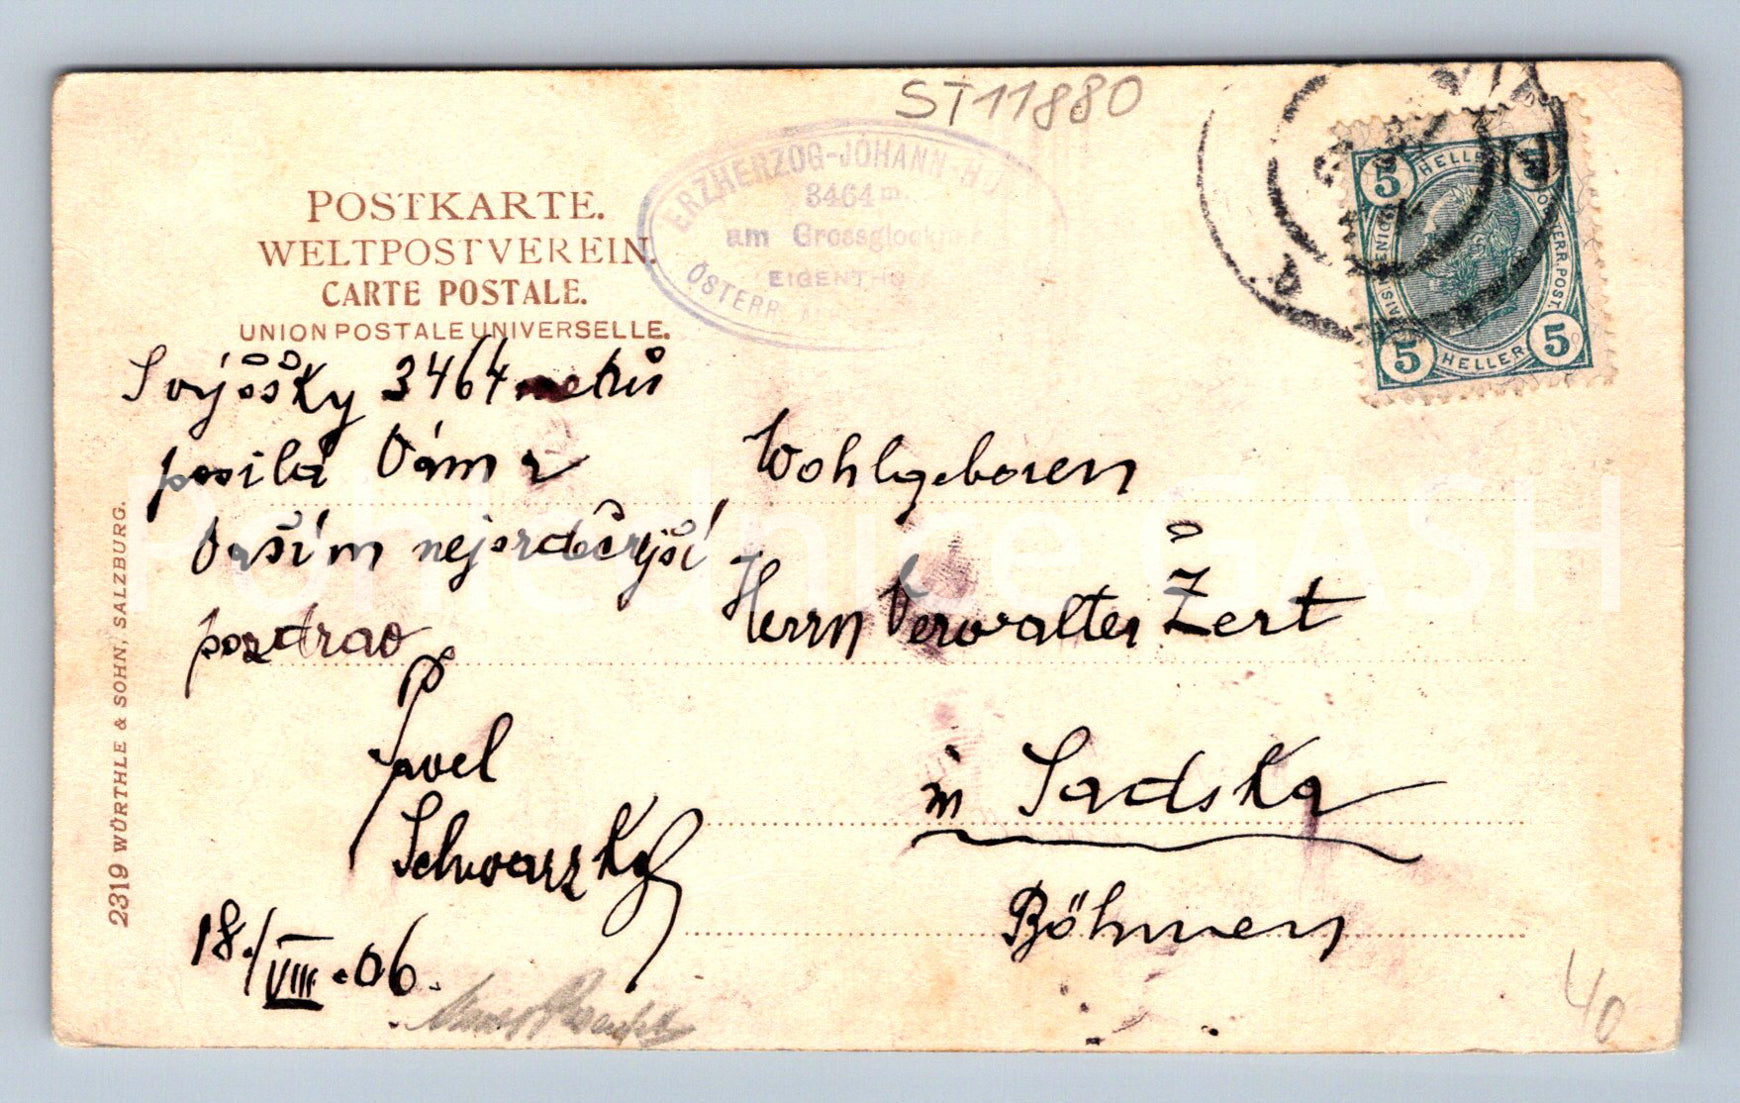 ST11880
ERZHERZOG-JOHANN-H
3464 m.
am Grossglock
EIGENTH
ÖSTERR. AL
5 HELLER 5
5 HELLER 5
POSTKARTE.
WELTPOSTVEREIN.
CARTE POSTALE.
UNION POSTALE UNIVERSELLE.
3464 metrů
posílá Vám a
Vaším nejsrdečnější
pozdrav
Pavel
Schwarzkopf
18./VIII.06.
Wohlgeboren
Herrn Verwalter Žert
in Sadska
Böhmen
2319 WÜRTHLE & SOHN, SALZBURG.
40
Pohlednice GASH